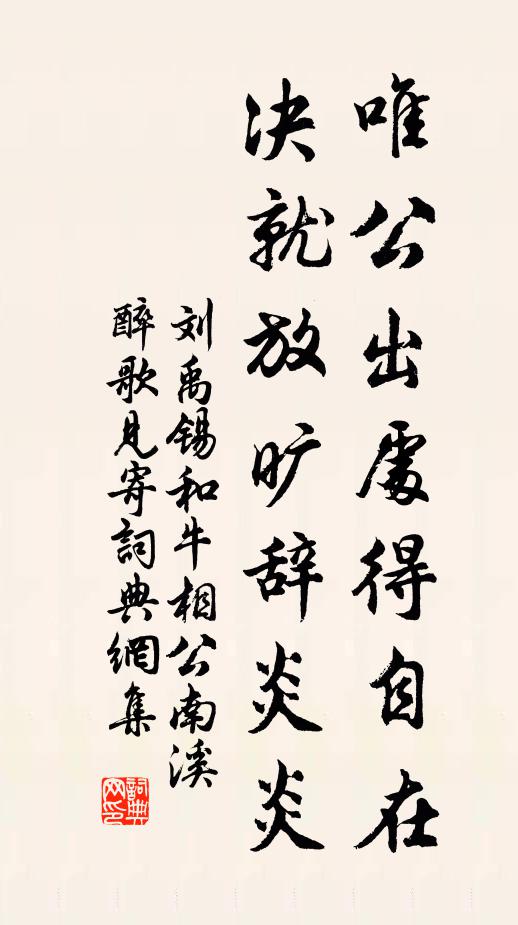 唯公出處得自在
决就放旷辞炎炎
刘禹锡和牛相公南溪
醉歌見寄詞典網集
詞典网印